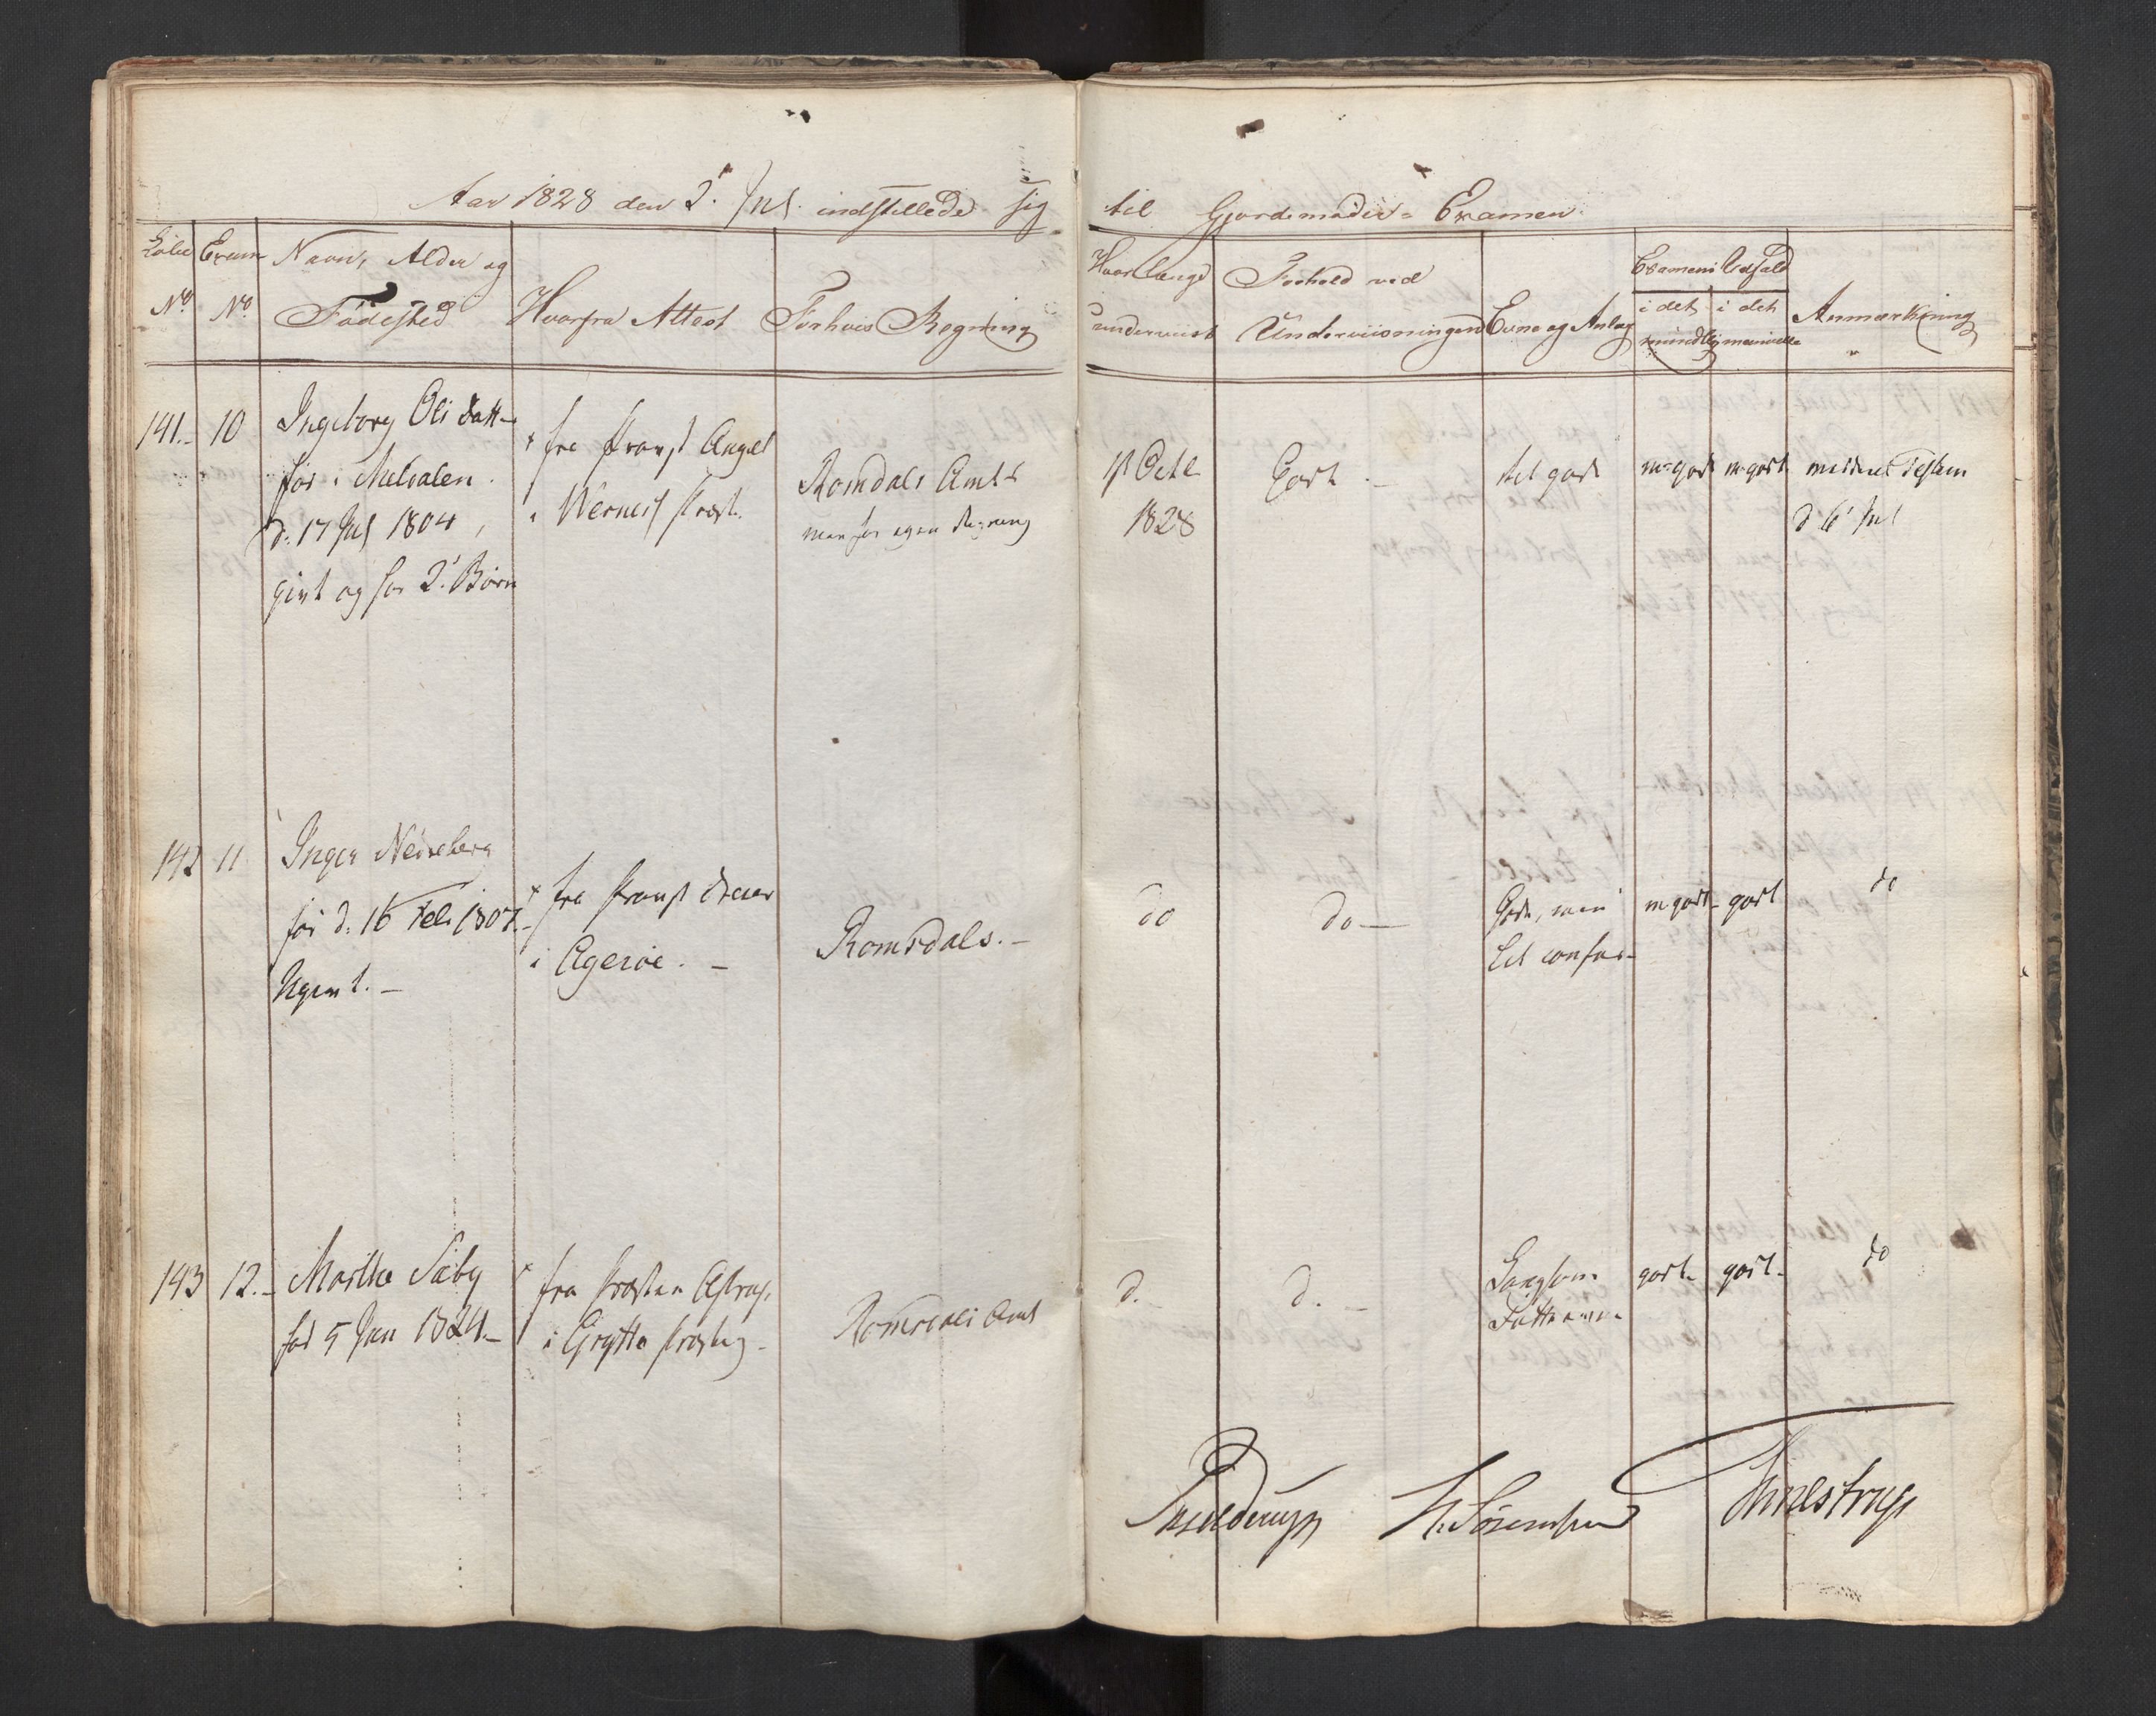 Aar 1828 den 2' Jul. indstillede sig til Gjordemoder-Examen
Løbe No.
Exam No.
Navn, Alder og
Födested
Hvorfra Attest
For hvis Regning
Hvor længe
underviist
Forhold ved
Underviisningen
Evne og Anlæg
Examens Udfald
i det mundtlig
i det manuelle
Anmærkning
141.- 10
Ingeborg Oli Datt-
fød i
d. 17 Jul 1804,
givt og har 2' Børn
fra Provst Angel
i Wernes Præst.
Romdals Amt
men for egen Regning
1st Octb
1828
Godt -
tel god
m godt
m godt
meddeelt Testim
d 6' Jul
142 11
Inger
fød d. 16 Feb 1807.-
Ugivt. -
fra Provst
i Agerøe. -
Romsdals. -
do
do -
Gode, men
lidt confus-
m godt-
godt
do
143 12.-
Marthe Sæby
fød 5 Jan 1824.-
fra Præsten Astrup,
i Grytte Præsteg -
Romsdals Amt
d. -
d. -
Langsom
Fatteevne
godt-
godt-
do
H. Sørenssen
Thulstrup